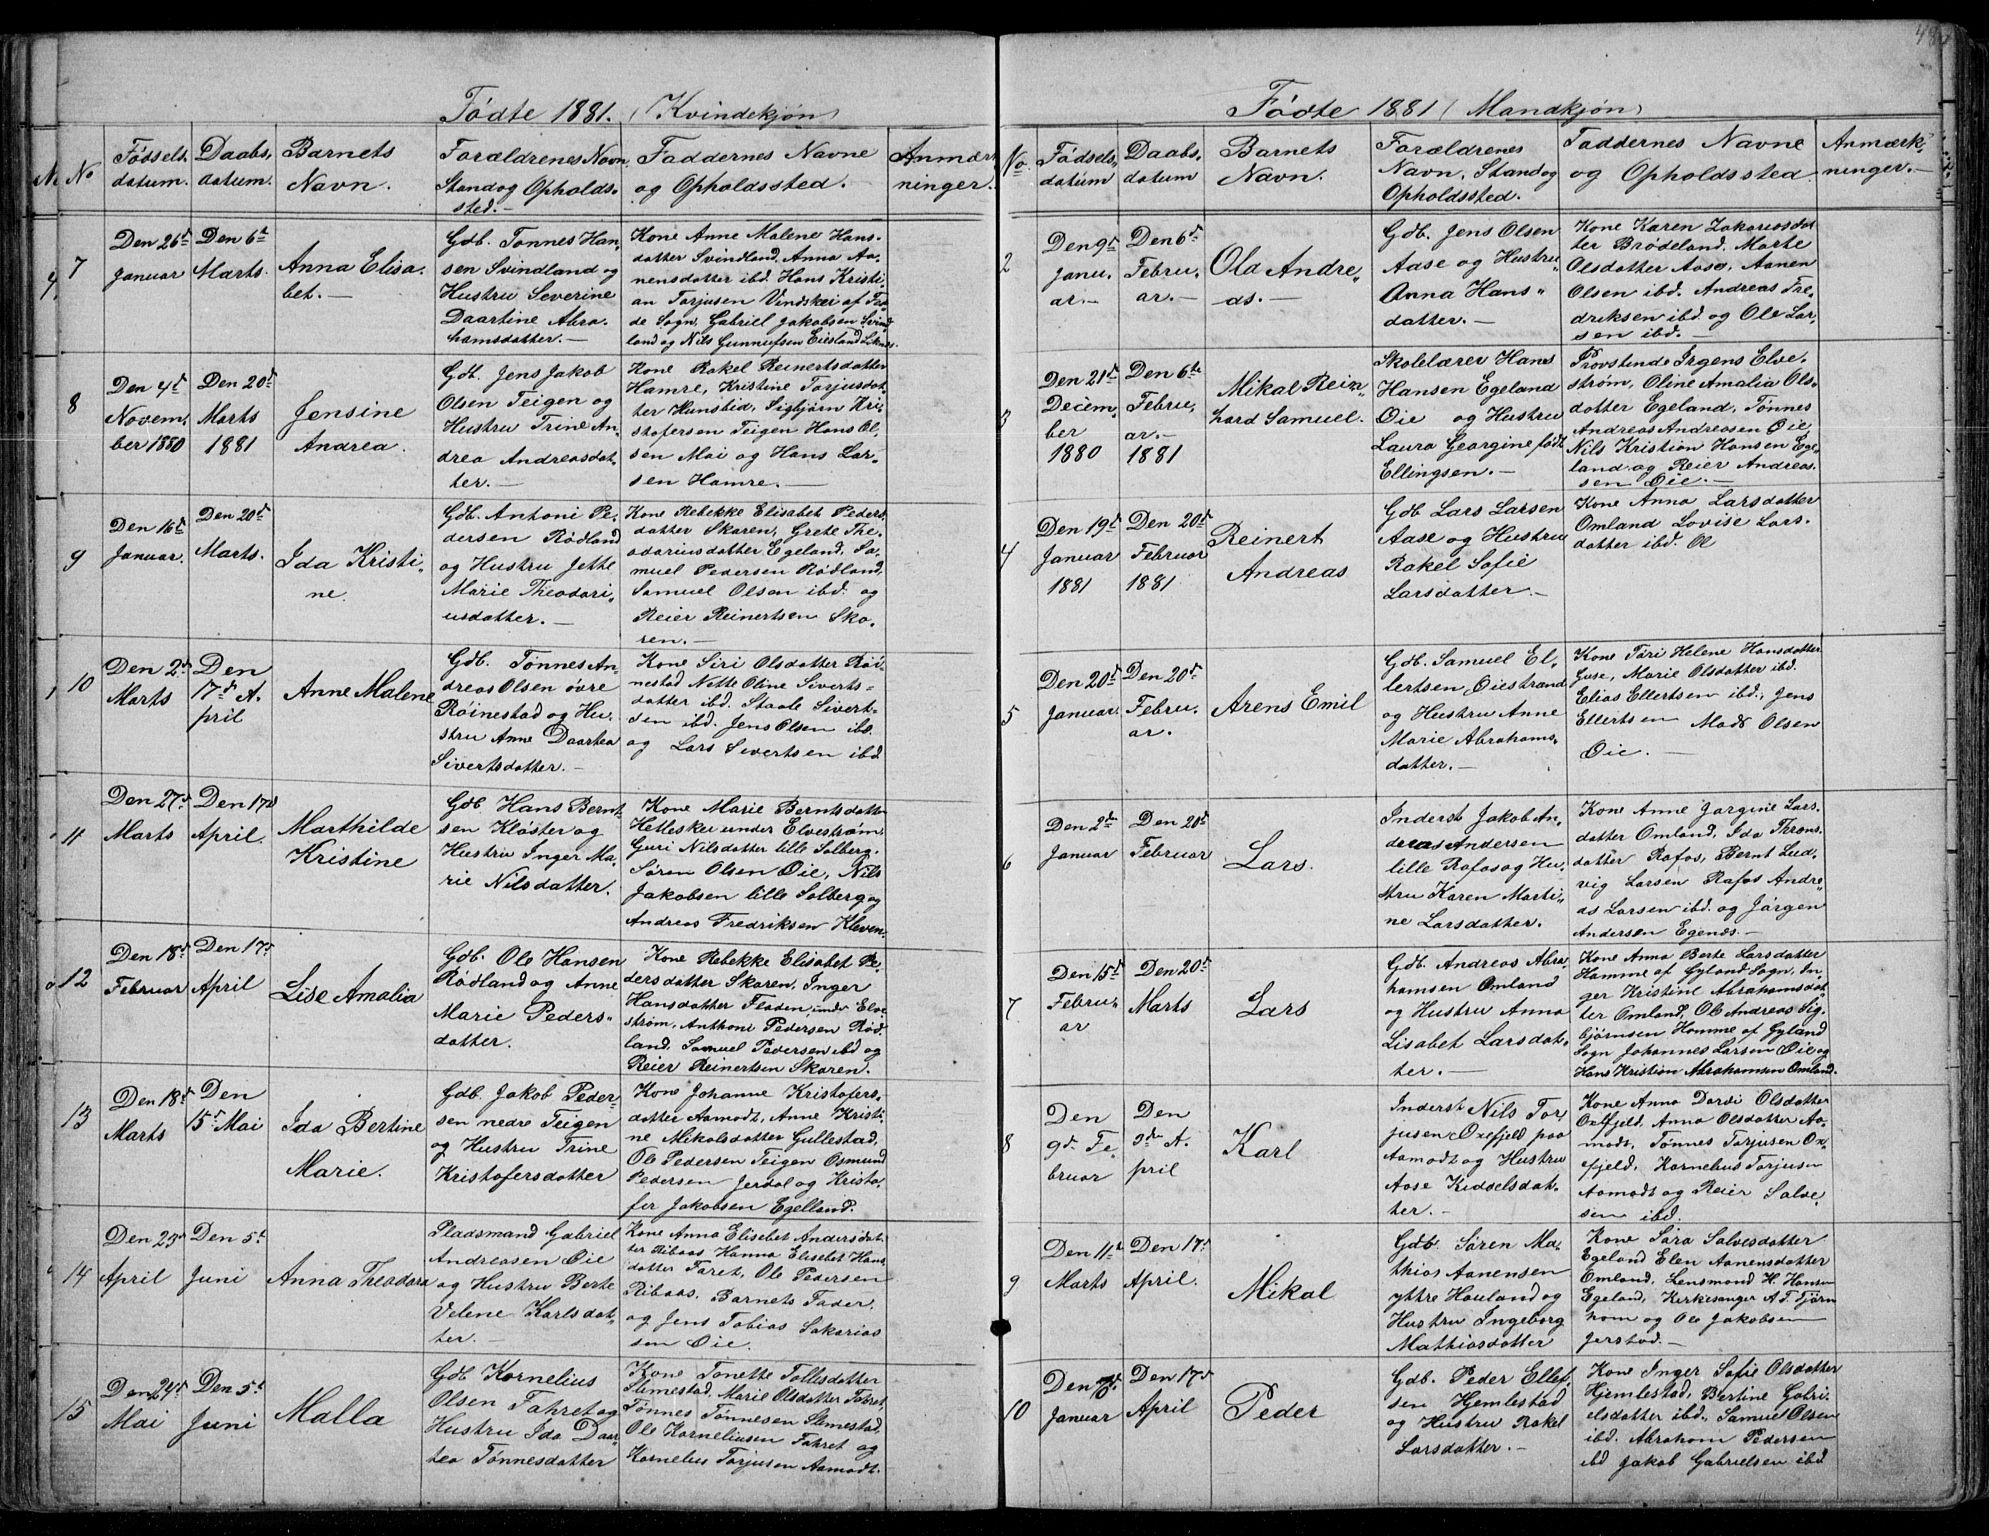 Fødte 1881. (Kvindekjøn)
No
Fødsels-
datum.
Daabs-
datum.
Barnets
Navn.
Forældrenes Navn,
Stand og Opholds-
sted.-
Faddernes Navne
og Opholdssted.
Anmærk-
ninger.
7
Den 26d
Januar
Den 6te
Marts.
Anna Elisa-
bet.-
Gdb. Tønnes Han-
sen Svindland og
Hustru Severine
Daartine Abra-
hamsdatter.-
Kone Anne Malene Hans-
datter Svindland, Anna Aa-
nensdatter ibd. Hans Kristi-
an Torjusen Vindskei af Fe-
de Sogn, Gabriel Jakobsen Svind-
land og Nils Gunnufsen Eiesland Liknes.
8
Den 4d
Novem-
ber 1880
Den 20d
Marts
1881
Jensine
Andrea.
Gdb. Jens Jakob
Olsen Teigen og
Hustru Trine An-
drea Andreasdat-
ter.-
Kone Rakel Reinertsdatter
Hamre, Kristine Torjusdat-
ter Hunsbid, Sigbjørn Kri-
stofersen Teigen Hans Ol-
sen Moi og Hans Lar-
sen Hamre.-
9
Den 16d
Januar.
Den 20d
Marts.
Ida Kristi-
ne.
Gdb. Antoni Pe-
dersen Rødland
og Hustru Jette
Marie Theodori-
usdatter.-
Kone Rebekke Elisabet Peders-
datter Skoren, Grete The-
odoriusdatter Egeland, Sa-
muel Pedersen Rødland,
Samuel Olsen ibd. og
Reier Reinertsen Sko-
ren.-
10
Den 2d
Marts
Den
17d A-
pril
Anne Malene
Gdb. Tønnes An-
dreas Olsen øvre
Røinestad og Hu-
stru Anne Daartea
Sivertsdatter.-
Kone Siri Olsdatter Røi-
nestad Nette Oline Siverts-
datter ibd. Staale Sivert-
sen ibd. Jens Olsen ibd.
og Lars Sivertsen ibd
11
Den 27d
Marts
Den 17d
April.
Marthilde
Kristine
Gdb. Hans Bernt-
sen Kløster og
Hustru Inger Ma-
rie Nilsdatter.
Kone Marie Berntsdatter
Hetleskei under Elvestrøm,
Guri Nilsdatter lille Solberg.
Søren Olsen Øie, Nils
Jakobsen lille Solberg og
Andreas Fredriksen Kleven.
12
Den 18d
Februar
Den 17d
April
Lise Amalia
Gdb. Ole Hansen
Rødland og Anne
Marie Peders-
datter.
Kone Rebekke Elisabet Pe-
dersdatter Skoren, Inger
Hansdatter Fladen, undr Elve-
strøm, Anthoni Pedersen Rød-
land. Samuel Pedersen ibd og
Reier Reinertsen Skoren.
13
Den 18d
Marts
Den
15d Mai
Ida Bertine
Marie.
Gdb. Jakob Peder-
sen nedre Teigen
og Hustru Trine
Kristofersdatter
Kone Johanne Kristofers-
datter Aamodt, Anne Kristi-
ne Mikalsdatter Gullestad,
Ole Pedersen Teigen Osmund
Pedersen Jerdal og Kristo-
fer Jakobsen Egelland.
14
Den 23d
April
Den 5t
Juni
Anna Theodora
Pladsmand Gabriel
Andreasen Øie
og Hustru Berte
Velene Karlsdat-
ter.-
Kone Anna Elisebet Andersdat-
ter Ribaas, Hanna Elisebet Hans-
datter Faret, Ole Pedersen
Ribaas, Barnets Fader,
og Jens Tobias Sakarias-
sen Øie.
15
Den 24d
Mai
Den 5t
Juni
Malla
Gdb Kornelius
Olsen Fahret og
Hustru Ida Daar-
tea Tønnesdatter
Kone Tonette Tollisdatter
Slimestad, Marie Olsdatter Fahret,
Tønnes Tønnesen Slimestad,
Ole Korneliusen Fahret og
Kornelius Torjusen Aamodt.
Fødte 1881 (Mandkjøn)
No.
Fødsels-
datum
Daabs-
datum
Barnets
Navn.
Forældrenes
Navn, Stand og
Opholdssted.
Faddernes Navne
og Opholdssted
Anmærk-
ninger.-
2
Den 9d
Janu-
ar.-
Den 6d
Febru-
ar.-
Ola Andre-
as.-
Gdb. Jens Olsen
Aase og Hustru
Anna Hans-
datter.-
Kone Karen Zakariasdat-
ter Brødeland, Marte
Olsdatter Aase, Aanen
Olsen ibd. Andreas Fre-
driksen ibd og Ole Lar-
sen ibd.
3
Den 21d
Decem-
ber
1880
Den 6te
Febru-
ar.-
1881
Mikal Rein-
hard Samuel.
Skolelærer Hans
Hansen Egeland
Øie og Hustru
Laura Georgine født
Ellingsen.-
Provstinde Irgens Elve-
strøm, Oline Amalia Ols-
datter Egeland, Tønnes
Andreas Andreasen Øie,
Nils Kristian Hansen Ege-
land og Reier Andreas-
sen Øie.-
4
Den 19d
Januar
1881
Den 20d
Februar
1881
Reinert
Andreas
Gdb Lars Larsen
Aase og Hustru
Rakel Sofie
Larsdatter.-
Kone Anna Larsdatter
Omland Lovise Lars-
datter ibd. Ol
5
Den 20d
Januar.
Den 20d
Febru-
ar.
Arens Emil
Gdb. Samuel El-
lertsen Øiestrand
og Hustru Anne
Marie Abrahams-
datter.-
Kone Tari Helene Hansdatter
Guse, Marie Olsdatter ibd.
Elias Ellertsen ibd., Jens
Ellertsen Mads Olsen
Øie.-
6
Den 2den
Januar
Den 20d
Februar
Lars.
Inderst Jakob An-
dreas Andersen
lille Rafos og Hu-
stru Karen Marti-
ne Larsdatter.
Kone Anne Jorgine Lars-
datter Omland, Ida Throns-
datter Rafos, Bernt Lud-
vig Larsen Rafos Andre-
as Larsen ibd. og Jørgen
Andersen Egenes.-
7
Den 15d
Febru-
ar
Den 20d
Marts
Lars
Gdb. Andreas Abra-
hamsen Omland
og Hustru Anna
Lisabet Larsdat-
ter.-
Kone Anna Berte Larsdatter
Homme af Gyland Sogn, In-
ger Kristine Abrahamsdat-
ter Omland, Ole Andreas Sig-
bjørnsen Homme af Gyland
Sogn Johannes Larsen Øie og
Hans Kristian Abrahamsen Omland.
8
Den
9d Fe-
bruar
Den
3die A-
pril
Karl
Inderst Nils Tor-
jusen Oxefjeld paa
Aamodt og Hustru
Aase Kiddelsdat-
ter.-
Kone Anna Dordi Olsdatter
Oxefjeld, Anna Olsdatter Aa-
modt, Tønnes Torjusen Ox-
efjeld, Kornelius Torjusen
Aamodt og Reier Salve-
sen ibd.
9
Den 11t
Marts
Den 17d
April.
Mikal
Gdb. Søren Ma-
thias Aanensen
yttre Houland og
Hustru Ingeborg
Mathiasdatter
Kone Sara Salvesdatter
Egeland Elen Aanensdatter
Omland, Lensmand H. Hansen
Egeland, Kirkesanger A. T. Tjørn-
hom og Ole Jakobsen
Jerstad.-
10
Januar
Den 17d
April
Peder
Gdb. Peder Ellef-
sen Hjemlestad
og Hustru Rakel
Larsdatter.-
Kone Inger Sofie Olsdatter
Hjemlestad, Bertine Gabri-
elsdatter ibd., Samuel Olsen
ibd. Abraham Pedersen
ibd Jakob Gabrielsen ibd